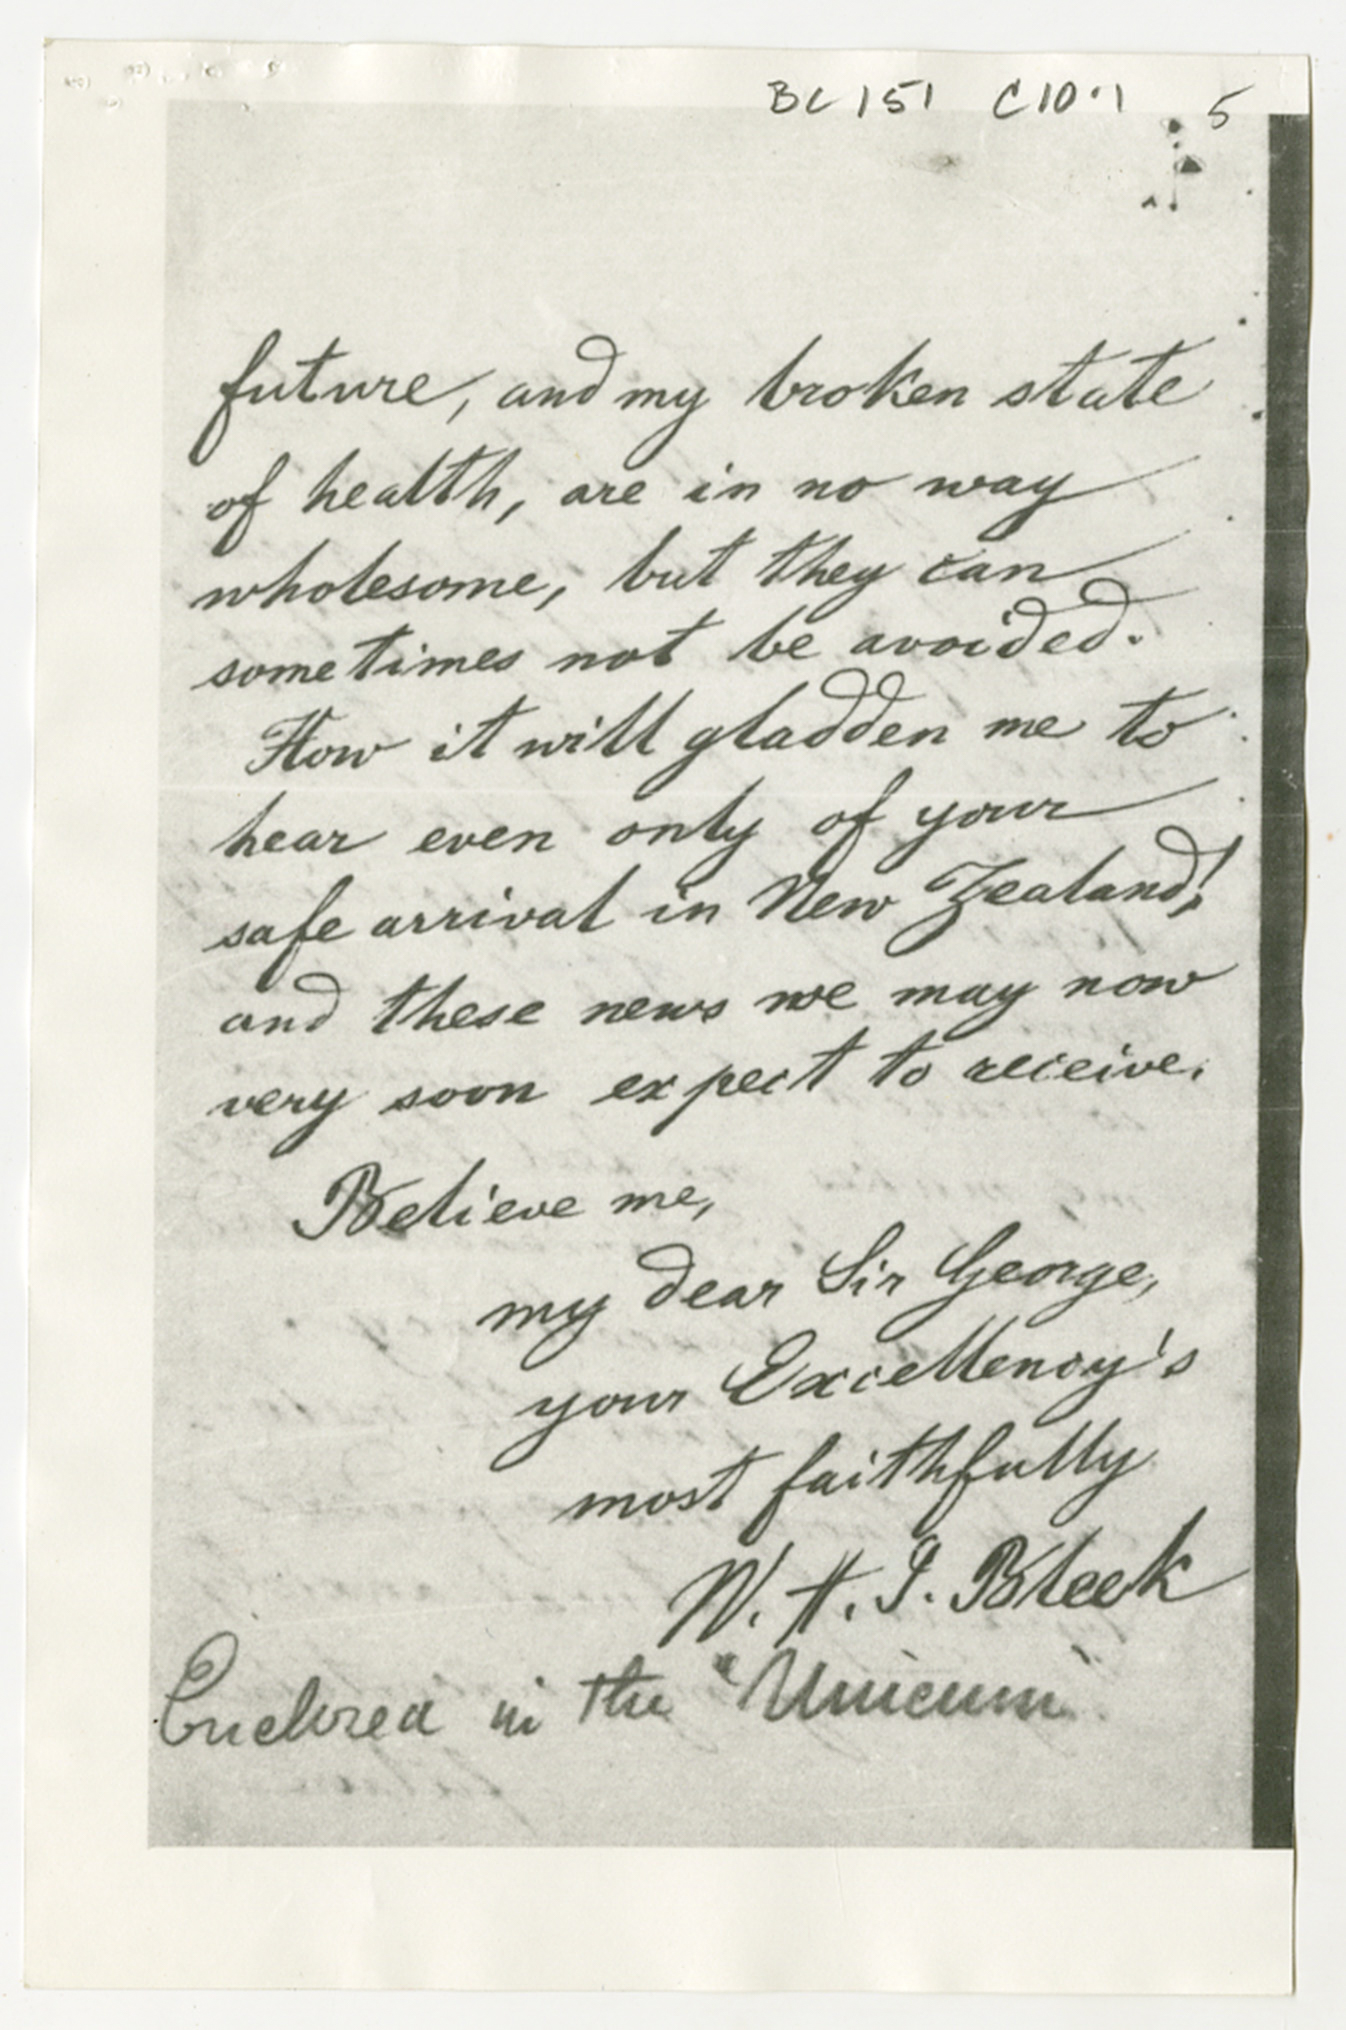 BC 151 C10.1 5
future, and my broken state
of health, are in no way
wholesome, but they can
sometimes not be avoided.
How it will gladden me to
hear even only of your
safe arrival in New Zealand!
and these news we may now
very soon expect to receive.
Believe me,
my dear Sir George,
your Excellency's
most faithfully
W. H. I. Bleek
Enclosed in the "Unicum"